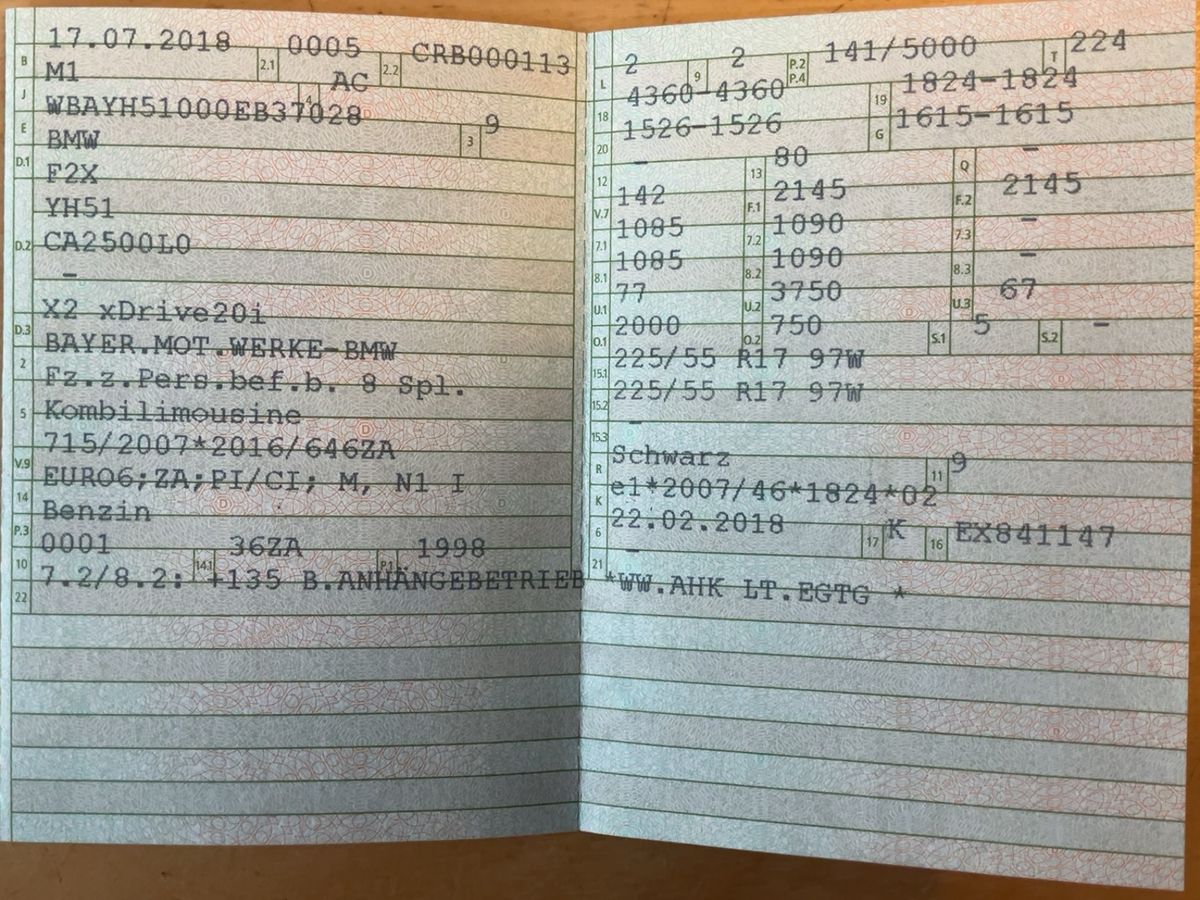 B 17.07.2018 2.1 0005 2.2 CRB000113
J M1 4 AC
E WBAYH51000EB37028 3 9
D.1 BMW
F2X
D.2 YH51
CA2500L0
-
D.3 X2 xDrive20i
2 BAYER.MOT.WERKE-BMW
5 Fz.z.Pers.bef.b. 8 Spl.
Kombilimousine
V.9 715/2007*2016/646ZA
14 EURO6;ZA;PI/CI; M, N1 I
P.3 Benzin
10 0001 14.1 36ZA P.1 1998
22 7.2/8.2: +135 B.ANHÄNGEBETRIEB *WW.AHK LT.EGTG *
L 2 9 2 P.2 P.4 141/5000 T 224
18 4360-4360 19 1824-1824
20 1526-1526 G 1615-1615
12 - 13 80 Q -
V.7 142 F.1 2145 F.2 2145
7.1 1085 7.2 1090 7.3 -
8.1 1085 8.2 1090 8.3 -
U.1 77 U.2 3750 U.3 67
O.1 2000 O.2 750 S.1 5 S.2 -
15.1 225/55 R17 97W
15.2 225/55 R17 97W
15.3 -
R Schwarz 11 9
K e1*2007/46*1824*02
6 22.02.2018 17 K 16 EX841147
21 -